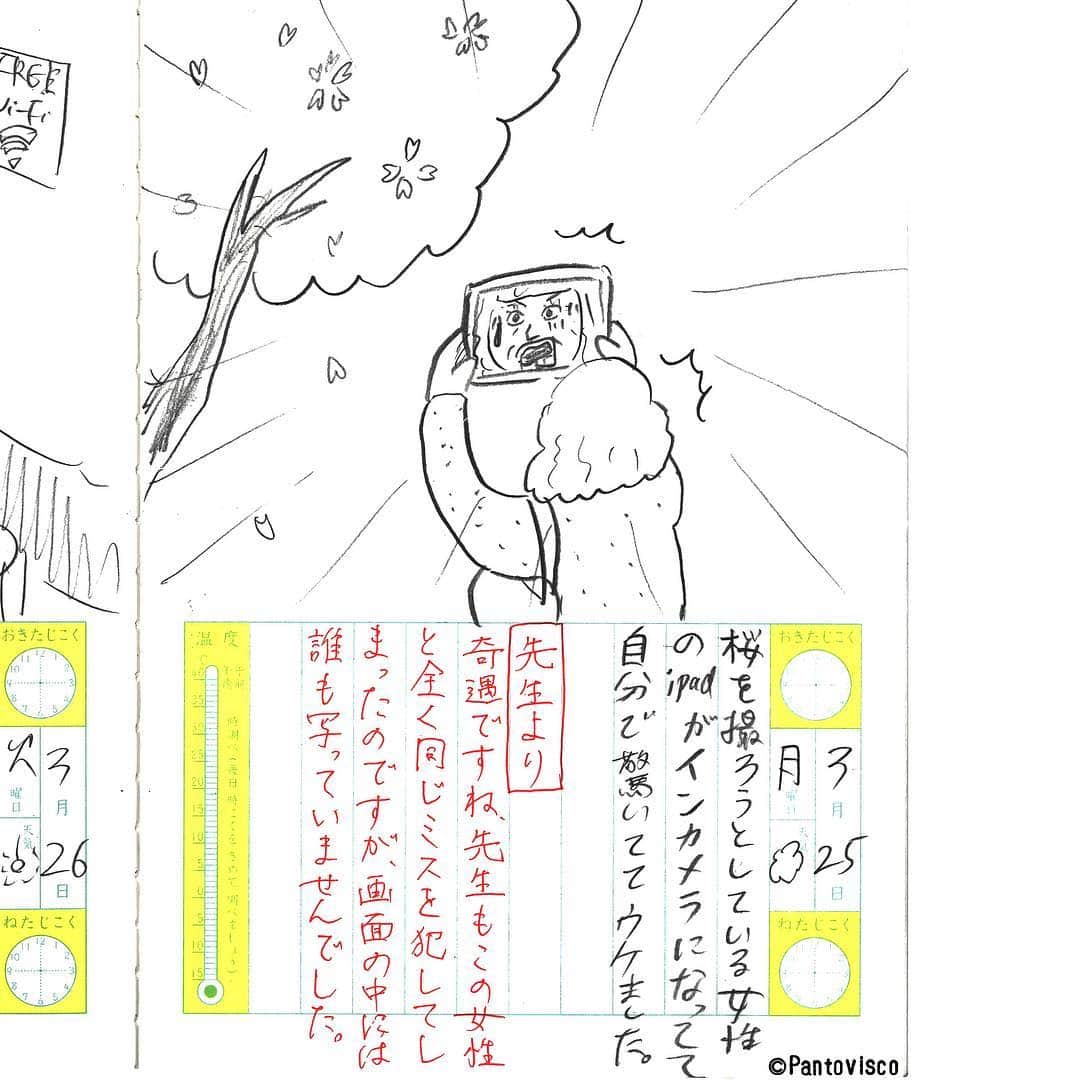 FREE
Wi-Fi
おきたじこく
3月
月曜日
25日
天気
ねたじこく
桜を撮ろうとしている女性
のipadがインカメラになってて
自分で驚いててウケました。
先生より
奇遇ですね、先生もこの女性
と全く同じミスを犯してし
まったのですが、画面の中には
誰も写っていませんでした。
温度
℃
40
35
30
25
20
15
10
5
0
5
10
15
おきたじこく
3月
火曜日
26日
天気
ねたじこく
©Pantovisco